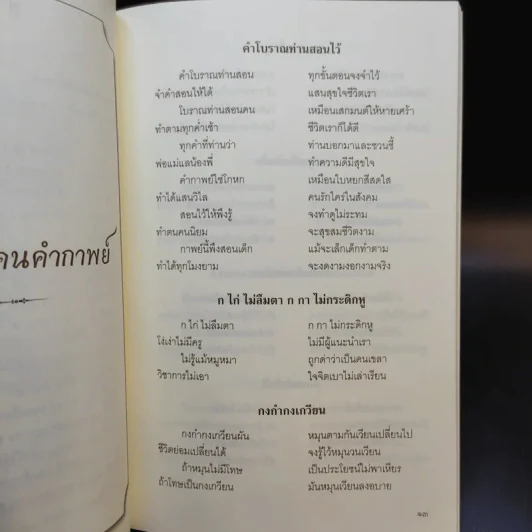 คนคำกาพย์
คำโบราณท่านสอนไว้
คำโบราณท่านสอน ทุกขั้นตอนจงจำไว้
จำคำสอนให้ได้ แสนสุขใจชีวิตเรา
โบราณท่านสอนคน เหมือนเสกมนต์ให้หายเศร้า
ทำตามทุกค่ำเช้า ชีวิตเราก็ได้ดี
ทุกคำที่ท่านว่า ท่านบอกมาและชวนชี้
พ่อแม่แลน้องพี่ ทำความดีมีสุขใจ
คำกาพย์ใช่โกหก เหมือนใบหยกสีสดใส
ทำได้แสนวิไล คนรักใคร่ในสังคม
สอนไว้ให้พึงรู้ จงทำดูไม่ระทม
ทำตนคนนิยม จะสุขสมชีวิตงาม
กาพย์นี้พึงสอนเด็ก แม้จะเล็กเด็กทำตาม
ทำได้ทุกโมงยาม จะงดงามงอกงามจริง
ก ไก่ ไม่ลืมตา ก กา ไม่กระดิกหู
ก ไก่ ไม่ลืมตา ก กา ไม่กระดิกหู
โง่เง่าไม่มีครู ไม่มีผู้แนะนำเรา
ไม่รู้แม้หมูหมา ถูกด่าว่าเป็นคนเขลา
วิชาการไม่เอา ใจจิตเบาไม่เล่าเรียน
กงกำกงเกวียน
กงกำกงเกวียนผัน หมุนตามกันเวียนเปลี่ยนไป
ชีวิตย่อมเปลี่ยนได้ จงรู้ไว้หมุนวนเวียน
ถ้าหมุนไม่มีโทษ เป็นประโยชน์ไม่พาเหียร
ถ้าโทษเป็นกงเกวียน มันหมุนเวียนลงอบาย
๑๓